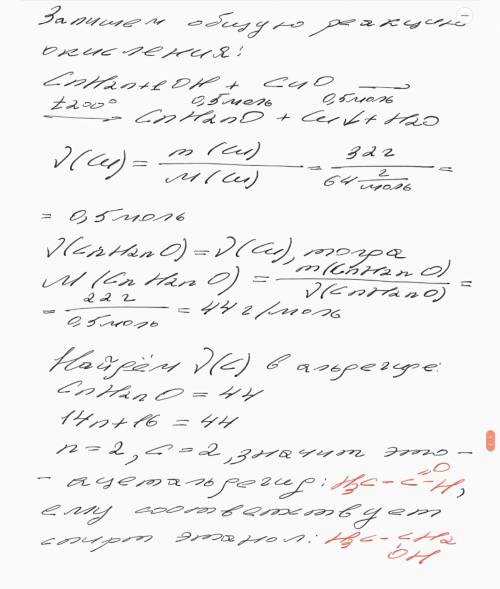 Запишем общую реакцию
окисления:
CnH2n+1OH + CuO ⟶
0,5моль 0,5моль
t200° ⟶ CnH2nO + Cu↓ + H2O
ν(Cu) = m(Cu) / M(Cu) = 32г / 64 г/моль =
= 0,5моль
ν(CnH2nO) = ν(Cu), тогда
M(CnH2nO) = m(CnH2nO) / ν(CnH2nO) =
= 22г / 0,5моль = 44г/моль
Найдём ν(C) в альдегиде:
CnH2nO = 44
14n+16 = 44
n=2, C=2, значит это -
- ацетальдегид: H3C-C=O-H,
ему соответствует
спирт этанол: H3C-CH2
OH